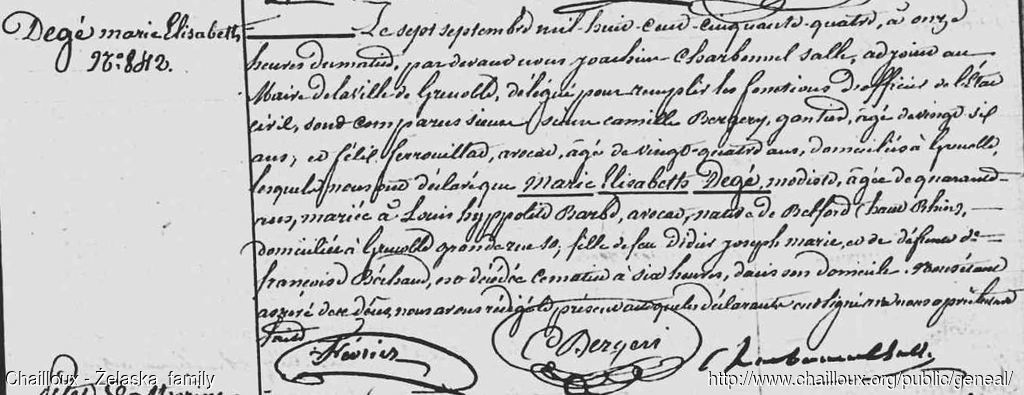 Degé marie Elisabeth
N.° 842.
Le sept septembre mil huit cent cinquante quatre, à onze
heures du matin, par devant nous joachim Charbonnel Salle, adjoint au
Maire de la ville de Grenoble, délégué pour remplir les fonctions d'officier de l'état
civil, sont comparus sieurs camille Bergery, gantier, âgé de vingt six
ans, et félix ferrouillat, avocat, âgé de vingt-quatre ans, domiciliés à Grenoble,
lesquels nous ont déclaré que Marie Elisabeth Degé, modiste, âgée de quarante
ans, mariée à Louis hyppolite Barbe, avocat, native de Belford (haut Rhin),
domiciliée à Grenoble grande rue 10, fille de feu Didier joseph marie, et de défunte d.e
françoise, est décédée ce matin à six heures, dans son domicile. Nous étant
assuré de ce décès, nous avons rédigé le présent acte que les déclarants ont signé avec nous après lecture
faite
Bergeri
Charbonnel Salle.
Chailloux - Żelaska family
http://www.chailloux.org/public/geneal/